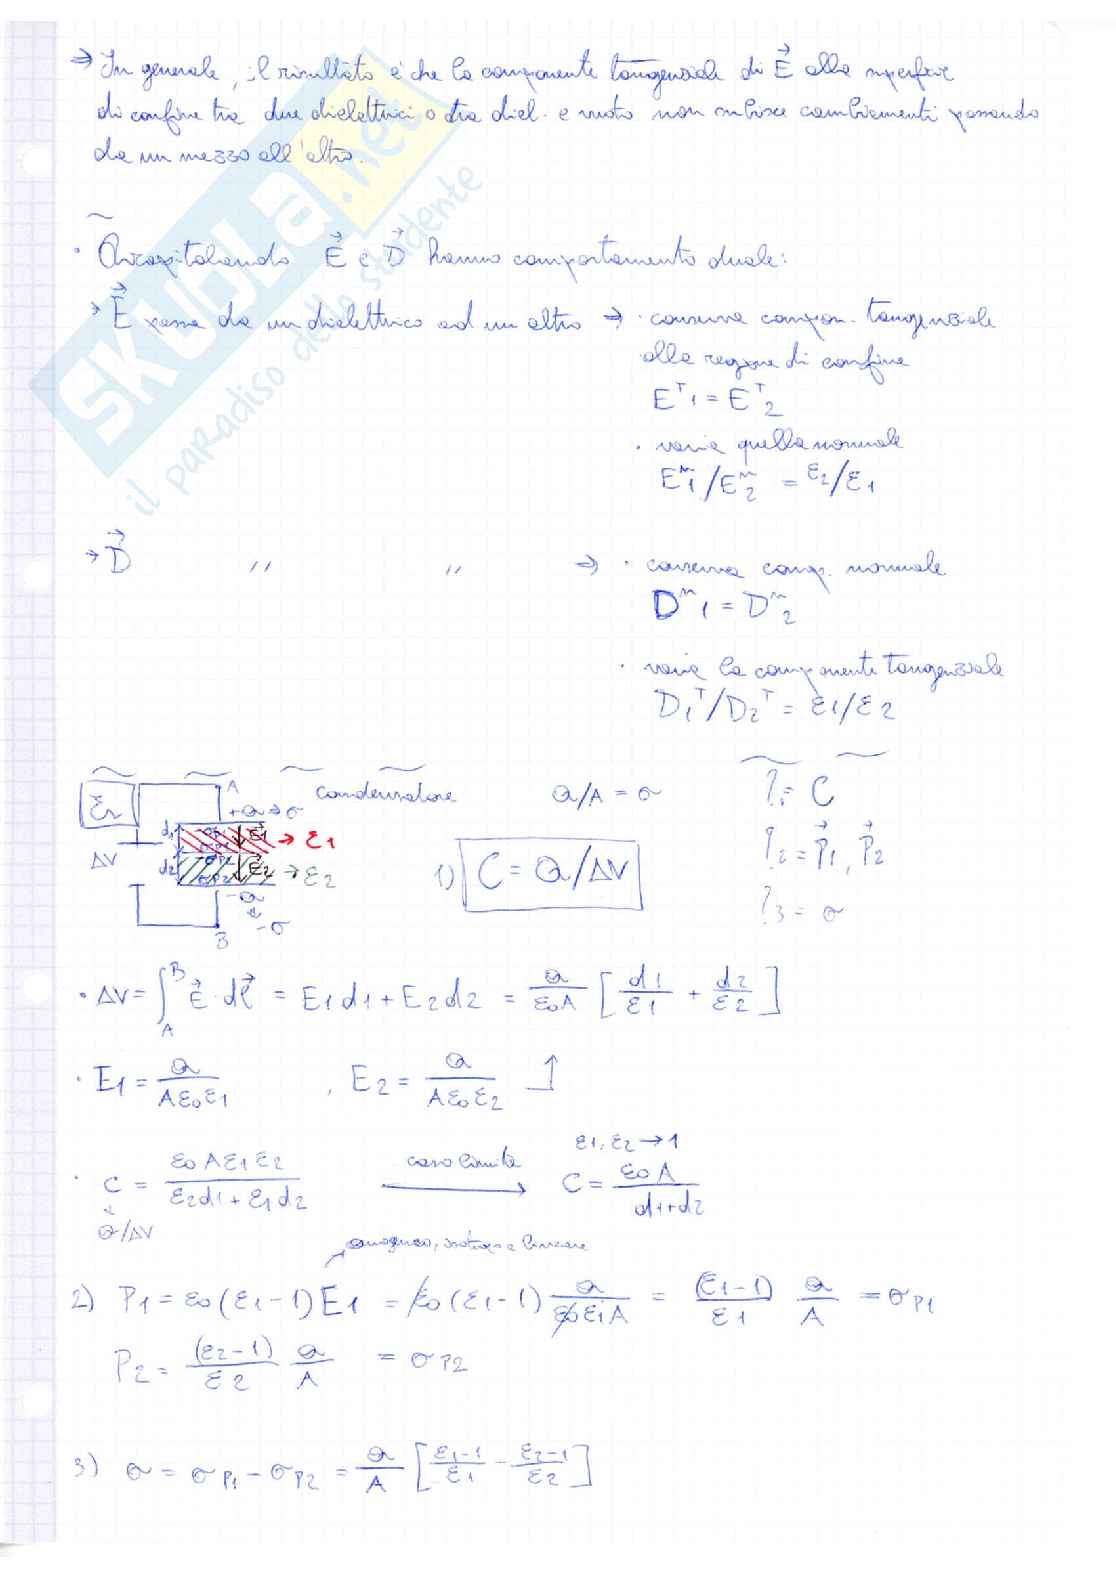 ⇒ In generale, il risultato è che la componente tangenziale di E⃗ alla superficie
di confine tra due dielettrici o tra diel. e vuoto non subisce cambiamenti passando
da un mezzo all'altro.
· Ricapitolando E⃗ e D⃗ hanno comportamento duale:
→ E⃗ passa da un dielettrico ad un altro ⇒ · conserva compon. tangenziale
alla regione di confine
Eᵀ1 = Eᵀ2
· varia quella normale
Eⁿ1/Eⁿ2 = ε2/ε1
→ D⃗ " " ⇒ · conserva comp. normale
Dⁿ1 = Dⁿ2
· varia la componente tangenziale
D1ᵀ/D2ᵀ = ε1/ε2
εr A condensatore Q/A = σ ?1 = C
+Q → σ
d1 E⃗1 → ε1
ΔV ?2 = P⃗1, P⃗2
d2 E⃗2 → ε2 1) C = Q/ΔV
-Q
?3 = σ
-σ
B
· ΔV = ∫_A^B E⃗ · dl⃗ = E1d1 + E2d2 = Q/(ε0A) [d1/ε1 + d2/ε2]
· E1 = Q/(Aε0ε1) , E2 = Q/(Aε0ε2)
ε1, ε2 → 1
· C = ε0Aε1ε2/(ε2d1 + ε1d2) caso limite → C = ε0A/(d1+d2)
Q/ΔV
omogeneo, isotropo e lineare
2) P1 = ε0(ε1-1)E1 = ε0(ε1-1) Q/(ε0ε1A) = (ε1-1)/ε1 Q/A = σP1
P2 = (ε2-1)/ε2 Q/A = σP2
3) σ = σP1 - σP2 = Q/A [(ε1-1)/ε1 - (ε2-1)/ε2]
SKUOLA.net
il paradiso dello studente